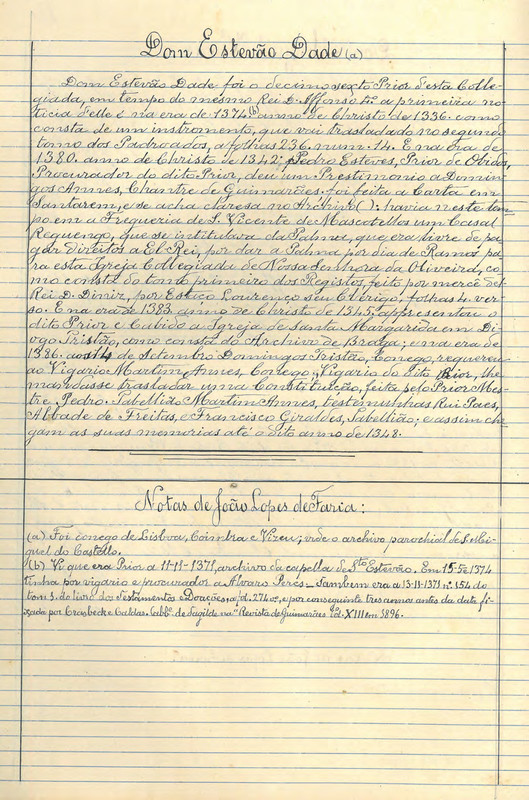 Dom Estevão Dade (a)
Dom Estevão Dade foi o decimo sexto Prior d'esta Colle-
giada, em tempo do mesmo Rei D. Affonso 4º a primeira no-
ticia d'elle é na era de 1374 (b) anno de Christo de 1336. como
consta de um instrumento, que vai trasladado no segundo
tomo dos Padroados, a folhas 236. num. 14. E na era de
1380. anno de Christo de 1342; Pedro Esteves, Prior de Obidos,
Procurador do dito Prior, deu um Prestimonio a Domin-
gos Annes, Chantre de Guimarães. foi feita a Carta em
Santarem, e se acha chresa no Archivo ( ): havia neste tem-
po em a Fregueria de S. Vicente de Mascotellos um Casal
Reguengo, que se intitulava da Palma, que era livre de pa-
gar direitos a El-Rei, por dar a Palma por dia de Ramos pa-
ra esta Igreja Collegiada de Nossa Senhora da Oliveira, co-
mo consta do tomo primeiro dos Registos, feito por mercê del
Rei D. Diniz, por Estaço Lourenço seu Clerigo, folhas 4. ver-
so. E na era de 1383. anno de Christo de 1345. appresentou o
dito Prior e Cabido a Igreja de Santa Margarida em Di-
ogo Tristão, como consta do Archivo de Braga; e na era de
1386. aos 14 de Setembro Domingos Tristão, Conego, requereu
ao Vigario Martim Annes, Conego, Vigario do dito Prior, lhe
mandasse trasladar uma Constituição, feita pelo Prior Mes-
tre Pedro. Tabellião Martim Annes, testimunhas Rui Paes,
Abbade de Freitas, e Francisco Giraldes, Tabellião; e assim che-
gam as suas memorias até o dito anno de 1348.
Notas de João Lopes de Faria:
(a) Foi conego de Lisboa, Coimbra e Vizeu; vide o archivo parochial de S. Mi-
guel do Castello.
(b) Vi que era Prior a 11-11-1371, archivo da capella de Stº Estevão. Em 15-5º-1374
tinha por vigario e procurador a Alvaro Peres. Tambem era a 13-11-1371 nº 154 do
tom 3. do livro dos Testamentos e Doações, a fol. 274 vº, e por conseguinte tres annos antes da data fi-
xada por Craesbeck e Caldas. Cabbº. de Tagilde na "Revista de Guimarães Vol. XIII em 1896.